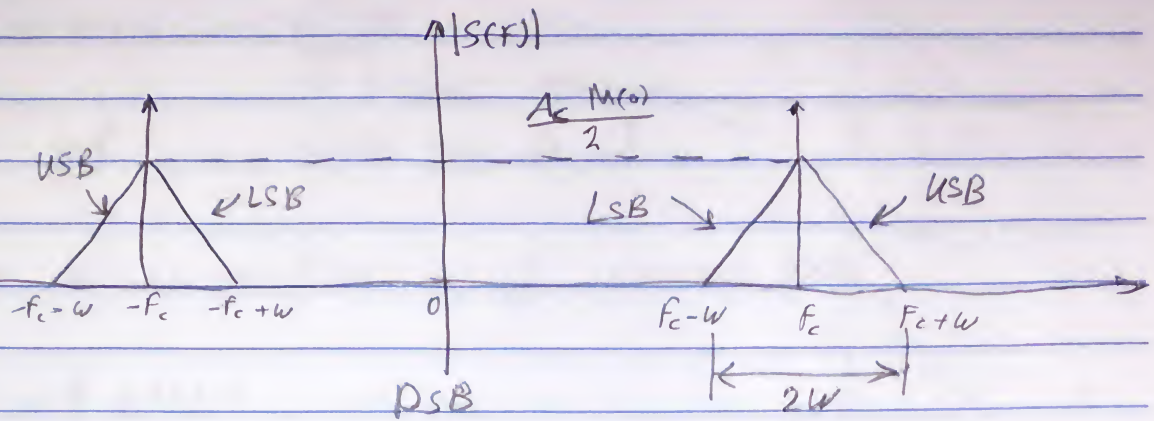 |S(f)|
A_c M(0)
2
USB
LSB
LSB
USB
-f_c-w -f_c -f_c+w 0 f_c-w f_c f_c+w
DSB
2W